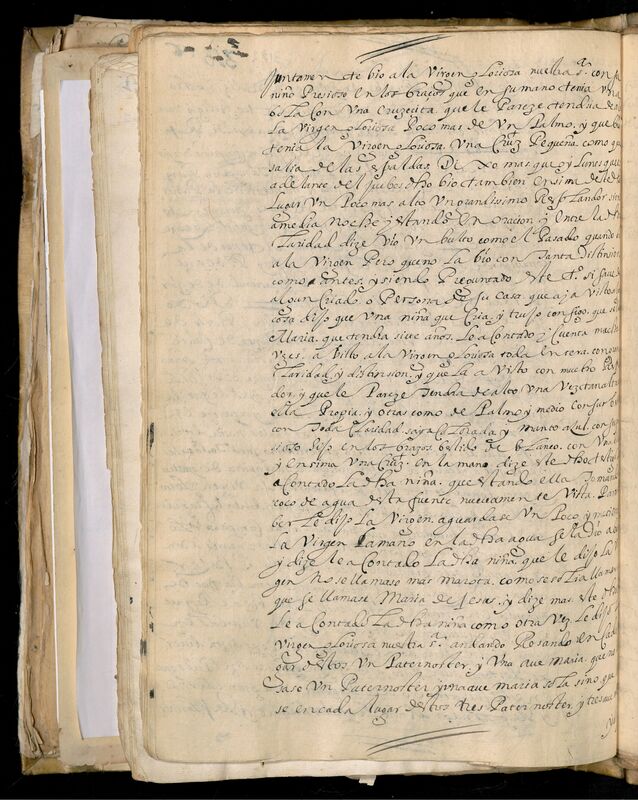 Juntamente bio a la Virgen gloriosa nuestra sª. con su
niño Presioso en los braços que en su mano tenia una
bola Con Una Cruzecita, que le Pareze tendria de alto
La Virgen gloriosa Poco mas de Un Palmo, y que
tenia la Virgen gloriosa, Una Cruz Pequeña, como que
salia de las espaldas. Dixo mas que oy Lunes que
adelante del Jueves dho bio tambien ensima deste dho
Lugar Un Poco mas alto Un grandissimo Resplandor
a media noche y estando En oracion y Entre la dha
Claridad dize Vio Un bulto como el Pasado quando
a la Virgen Pero que no la bio con Tanta Distinsion
como antes, y siendo Preguntado este tº. si save de
algun Criado, o Persona de su casa, que aja visto
cosa dijo que Una niña que Cria, y trujo consigo, que se
Maria. que tendra siete años. Le a Contado y Cuenta muchas
vezes, a Visto a la Virgen gloriosa toda Entera con
Claridad, y distinsion, y que La a Visto con mucho
dor, y que le Pareze Tendra de alto Una Vez tanalta
ella Propia, y otras como de Palmo y medio Con su
con Toda Claridad, saya Colorada y manto asul, con su
sioso Hijo en los braços bestido de blanco. con Una
y ensima Una Cruz. en la mano, dize este dho tº
a Contado La dha niña. que estando ella Tomando
coco de agua desta fuente nuevamente Vista Para
ber Le dijo La Virgen aguardase Un Poco, y metio
La Virgen La mano en la dha agua se la dio a
y dize le a Contado La dha niña, que le dijo La
gen No se llamase mas marota, como se solia llamar
que se llamase Maria de Jesus, y dize mas este dho
Le a Contado La dha niña como otra Vez Le dijo
Virgen gloriosa nuestra sª. andando Resando en cada
gar destos Un Paternoster, y Una ave maria, que no
sase Un Paternoster y una ave maria sola sino que
se en cada lugar destos tres Paternoster, y tres ave